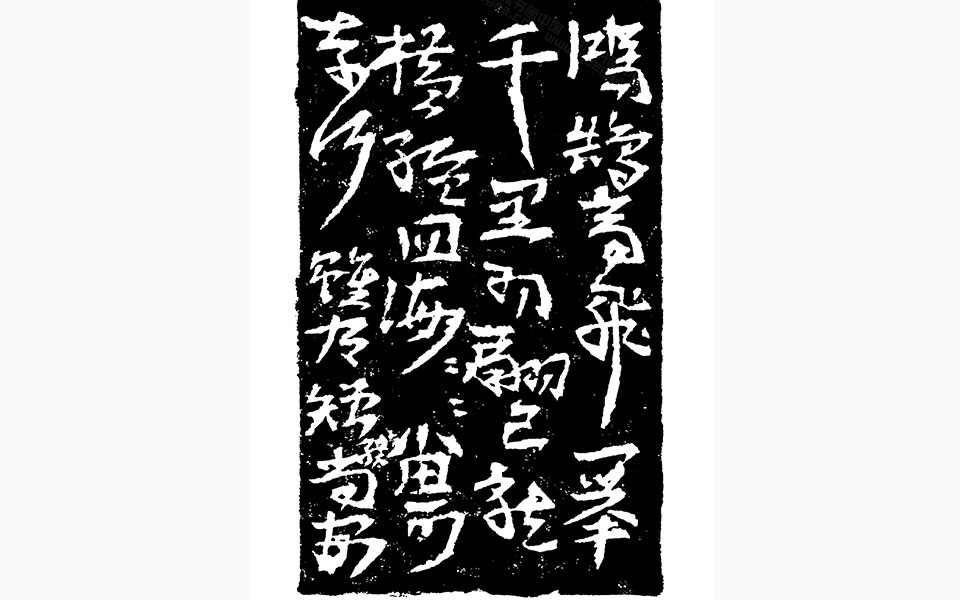 鴻鵠高飛一舉
千里羽翮已就
橫絕四海〻〻當可
奈何雖有矰繳尚安